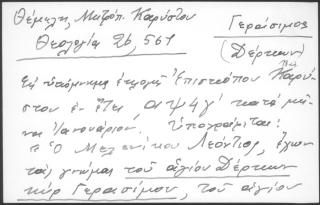 Θέμελη, Μητρόπ. Καρύστου
Θεολογία 26, 561
Γεράσιμος
(Δέρκων)
Ἐν ὑπομνήματι ἐκλογῆς Ἐπισκόπου Καρύ-
στου ἐν ἔτει, αψλγ' κατὰ μῆ-
να Ἰανουάριον. Ὑπογράφεται:
"Ὁ Μελενίκου Λεόντιος, ἔχων
τὰς γνώμας τοῦ ἁγίου Δέρκων
κὺρ Γερασίμου, τοῦ ἁγίου